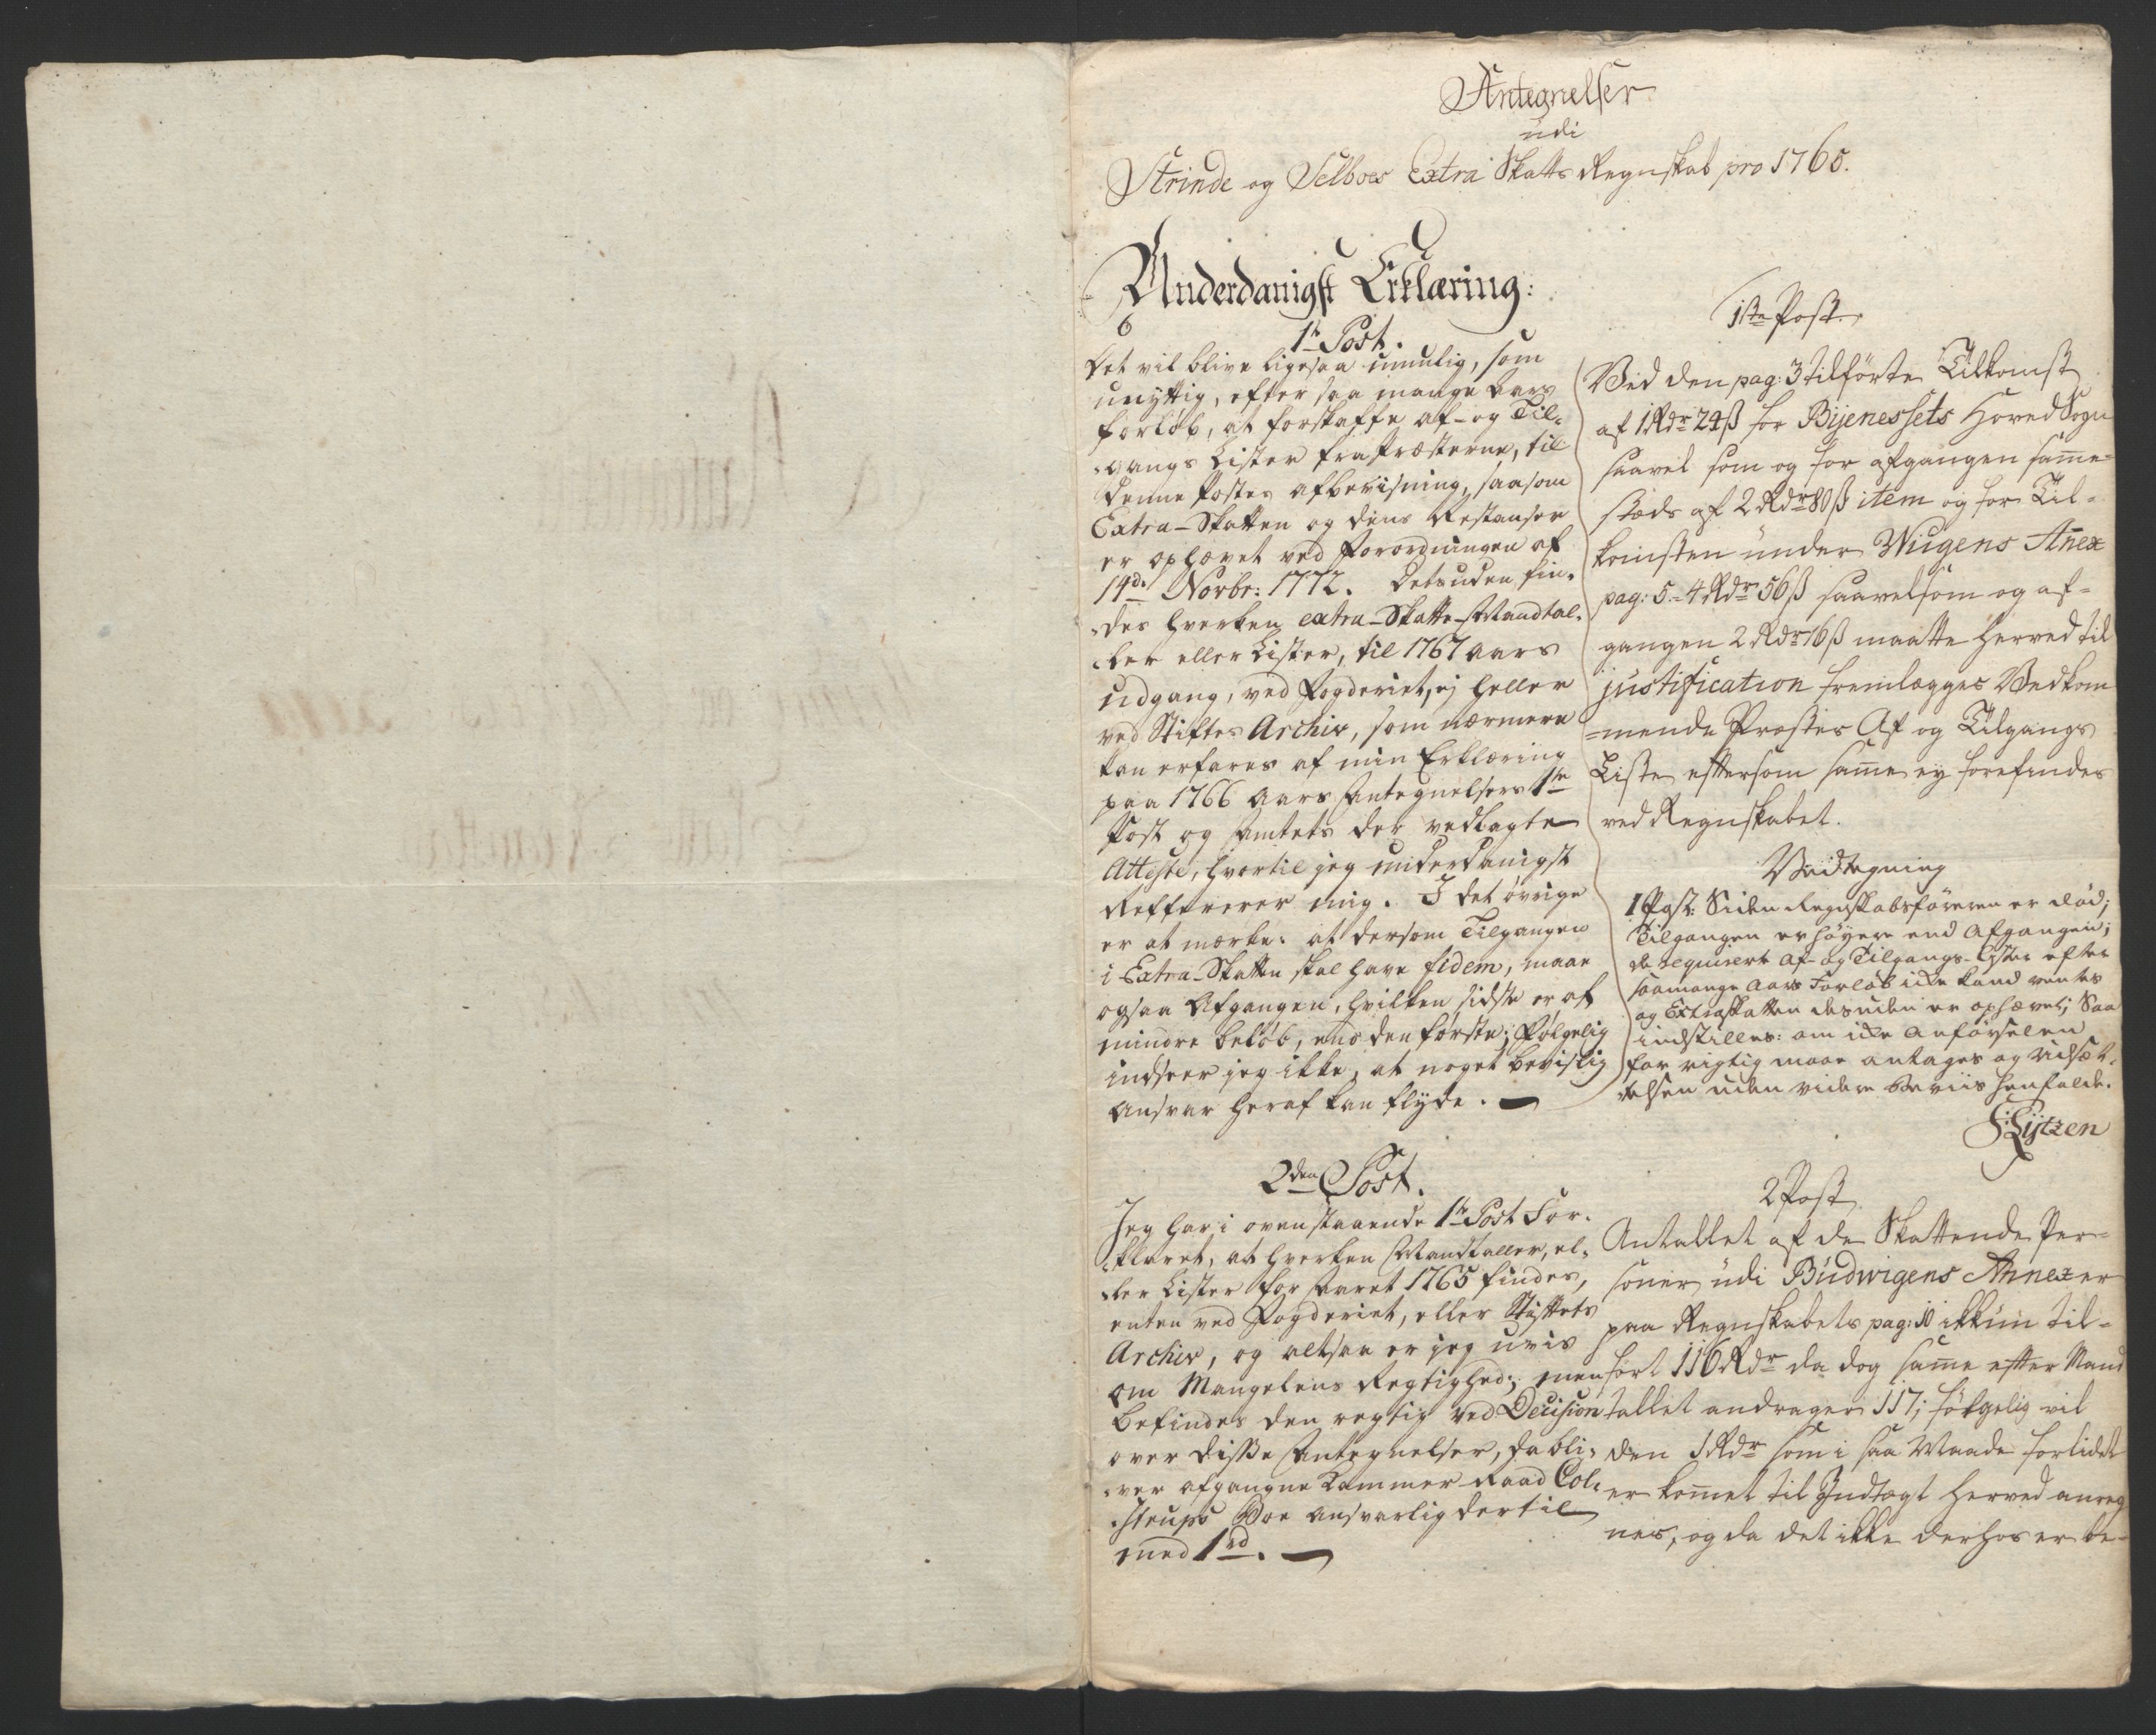 Antegnelser
udi
Strinde og Selboes Extra Skatts Regnskab pro 1765.
Underdanigst Erklæring:
1ste Post.
Det vil blive ligesaa umulig, som
unyttig, efter saa mange Aars
forløb, at forskaffe af- og Til-
gangs Lister fra Præsterne, til
denne Postes afbeviisning, saasom
Extra-Skatten og dens Restanser
er ophævet ved Forordningen af
14de Novbr: 1772. Desuden fin-
des hverken extra-Skatte-Mandtal-
ler eller Lister, til 1767 aars
udgang, ved Fogderiet, ej heller
ved Stiftes Archiv, som nærmere
kan erfares af min Erklæring
paa 1766 Aars Antegnelsers 1ste
Post og Amtets der vedlagte
Atteste, hvortil jeg underdanigst
Reffererer mig. I det øvrige
er at mærke: at dersom Tilgangen
i Extra-Skatten skal have fidem, maae
ogsaa Afgangen, hvilken sidste er af
mindre beløb, end den første; Følgelig
indseer jeg ikke, at noget bevislig
Ansvar heraf kan flyde.
2den Post.
Jeg har i ovenstaaende 1ste Post For-
klaret, at hverken Mandtaller, el-
ler Lister for Aaret 1765 findes,
enten ved Fogderiet, eller Stiftets
Archiv, og altsaa er jeg uvis
om Mangelens Rigtighed; men
befindes den rigtig ved Decision
over disse Antegnelser, da bli-
ver afgangne Kammer-Raad Col-
strups Boe ansvarlig dertil
med 1rd.
1ste Post.
Ved den pag: 3 tilførte Tilkomst
af 1 Rdr 24 ß for Bijenessets Hoved Sogn
saavel som og for afgangen samme-
steds af 2 Rdr 80 ß item og for Til-
komsten under Wigens Anex
pag: 5.- 4 Rdr 56 ß saavelsom og af-
gangen 2 Rdr 16 ß maatte herved til
justification fremlægges Vedkom
mende Præstes Af og Tilgangs
Liste eftersom samme ey forefindes
ved Regnskabet.
Veidtegning
1 Post: Siden Regnskabsføreren er død;
Tilgangen er høyere end Afgangen;
de requirerte Af- og Tilgangs-Lister efter
saamange Aars Forløb icke kand ventes
og Extraskatten desuden er ophævet; Saa
indstilles: om icke Anførselen
for rigtig maae antages og Udsæt-
telsen uden videre Beviis henfalde.
F: Lytzen
2 Post
Antallet af de Skattende Per-
soner udi Budwigens Annex er
paa Regnskabets pag: 10 ikkun til-
ført 116 Rdr da dog samme efter Mand
tallet andrager 117; følgelig vil
den 1 Rdr som i saa Maade forlidet
er kommet til Indtægt herved anreg
nes, og da det ikke derhos er be-